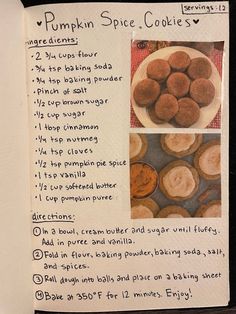 ♥ Pumpkin Spice Cookies ♥
servings: 12
ingredients:
• 2 3/4 cups flour
• 3/4 tsp baking soda
• 3/4 tsp baking powder
• Pinch of salt
• 1/2 cup brown sugar
• 1/2 cup sugar
• 1 tbsp cinnamon
• 1/4 tsp nutmeg
• 1/4 tsp cloves
• 1/2 tsp pumpkin pie spice
• 1 tsp vanilla
• 1/2 cup softened butter
• 1 cup pumpkin puree
directions:
① In a bowl, cream butter and sugar until fluffy.
Add in puree and vanilla.
② Fold in flour, baking powder, baking soda, salt,
and spices.
③ Roll dough into balls and place on a baking sheet
④ Bake at 350°F for 12 minutes. Enjoy!